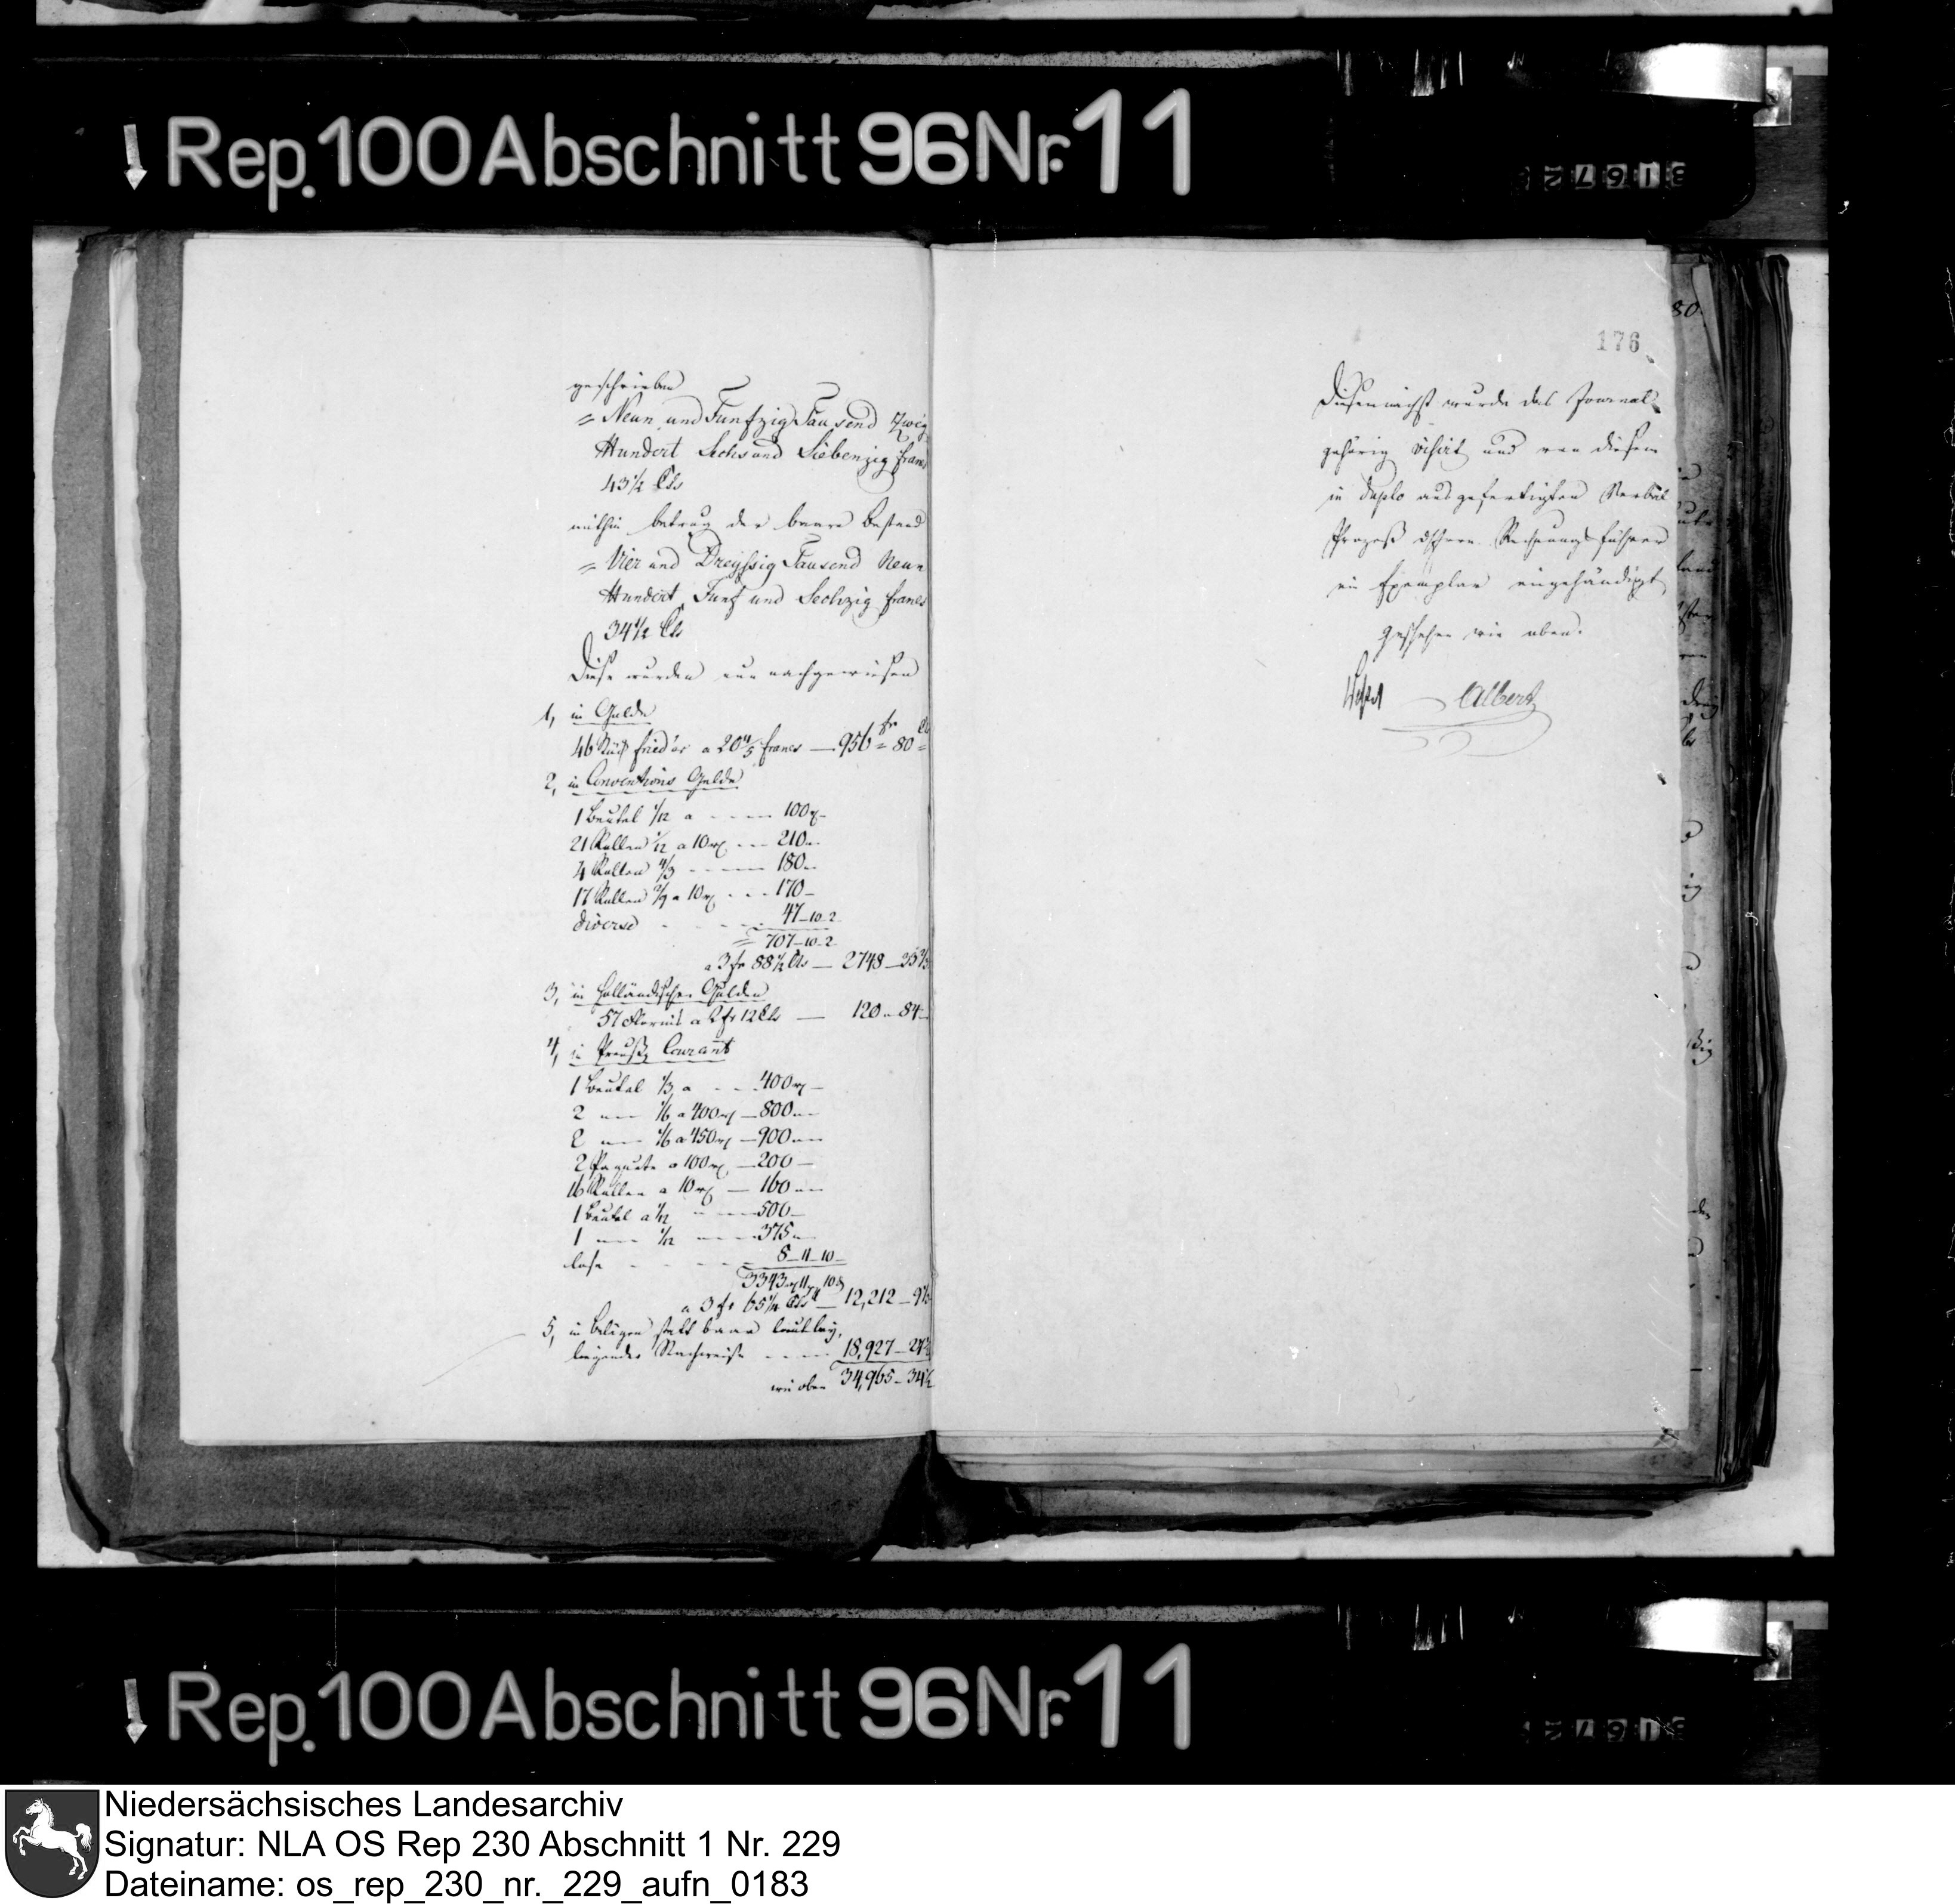 Rep. 100 Abschnitt 96 Nr. 11
geschrieben
= Neun und Funfzig Tausend Zwey
Hundert Sechs und Siebenzig francs
43½ Cts
mithin betrug der baare Bestand
= Vier und Dreyssig Tausend Neun
Hundert Funf und Sechzig francs
34½ Cts
Diese wurden nun nachgewiesen
1, in Golde
46 Stück fried'or a 20 4/5 francs — 956 fr = 80 Cts =
2, in Conventions Gelde
1 Beutel 1/12 a - - - - 100
21 Rollen 1/12 a 10 - - - 210
4 Rollen - - - - 180
17 Rollen a 10 - - - 170 -
diverse - - - - 47 - 10 - 2
= 707 - 10 - 2
a 3 fr 88½ Cts — 2748 -
3, in holländischen Gulden
57 florins a 2 fr 12 Cts — 120 - 84
4, in Preuß. Courant
1 Beutel 1/3 a - - 400
2 — 1/6 a 400 — 800
2 — 1/6 a 450 — 900
2 Paquete a 100 — 200 —
16 Rollen a 10 — 160
1 Beutel a 1/12 - - 500 -
1 — 1/12 - - 375
lose - - - - 8 - 11 - 10
3343 11 10
a 3 fr 65¼ Cts — 12,212 -
5, in Belägen statt baar laut bey,
liegender Nachweise - - - 18,927 -
wie oben 34,965 - 34½
80
176
Diesemnächst wurde das Journal
gehörig visirt und von diesem
in duplo ausgefertigten Verbal
Prozeß Rechnungsführer
ein Exemplar eingehändigt
Geschehen wie oben.
Albert
Rep. 100 Abschnitt 96 Nr. 11
Niedersächsisches Landesarchiv
Signatur: NLA OS Rep 230 Abschnitt 1 Nr. 229
Dateiname: os_rep_230_nr._229_aufn_0183